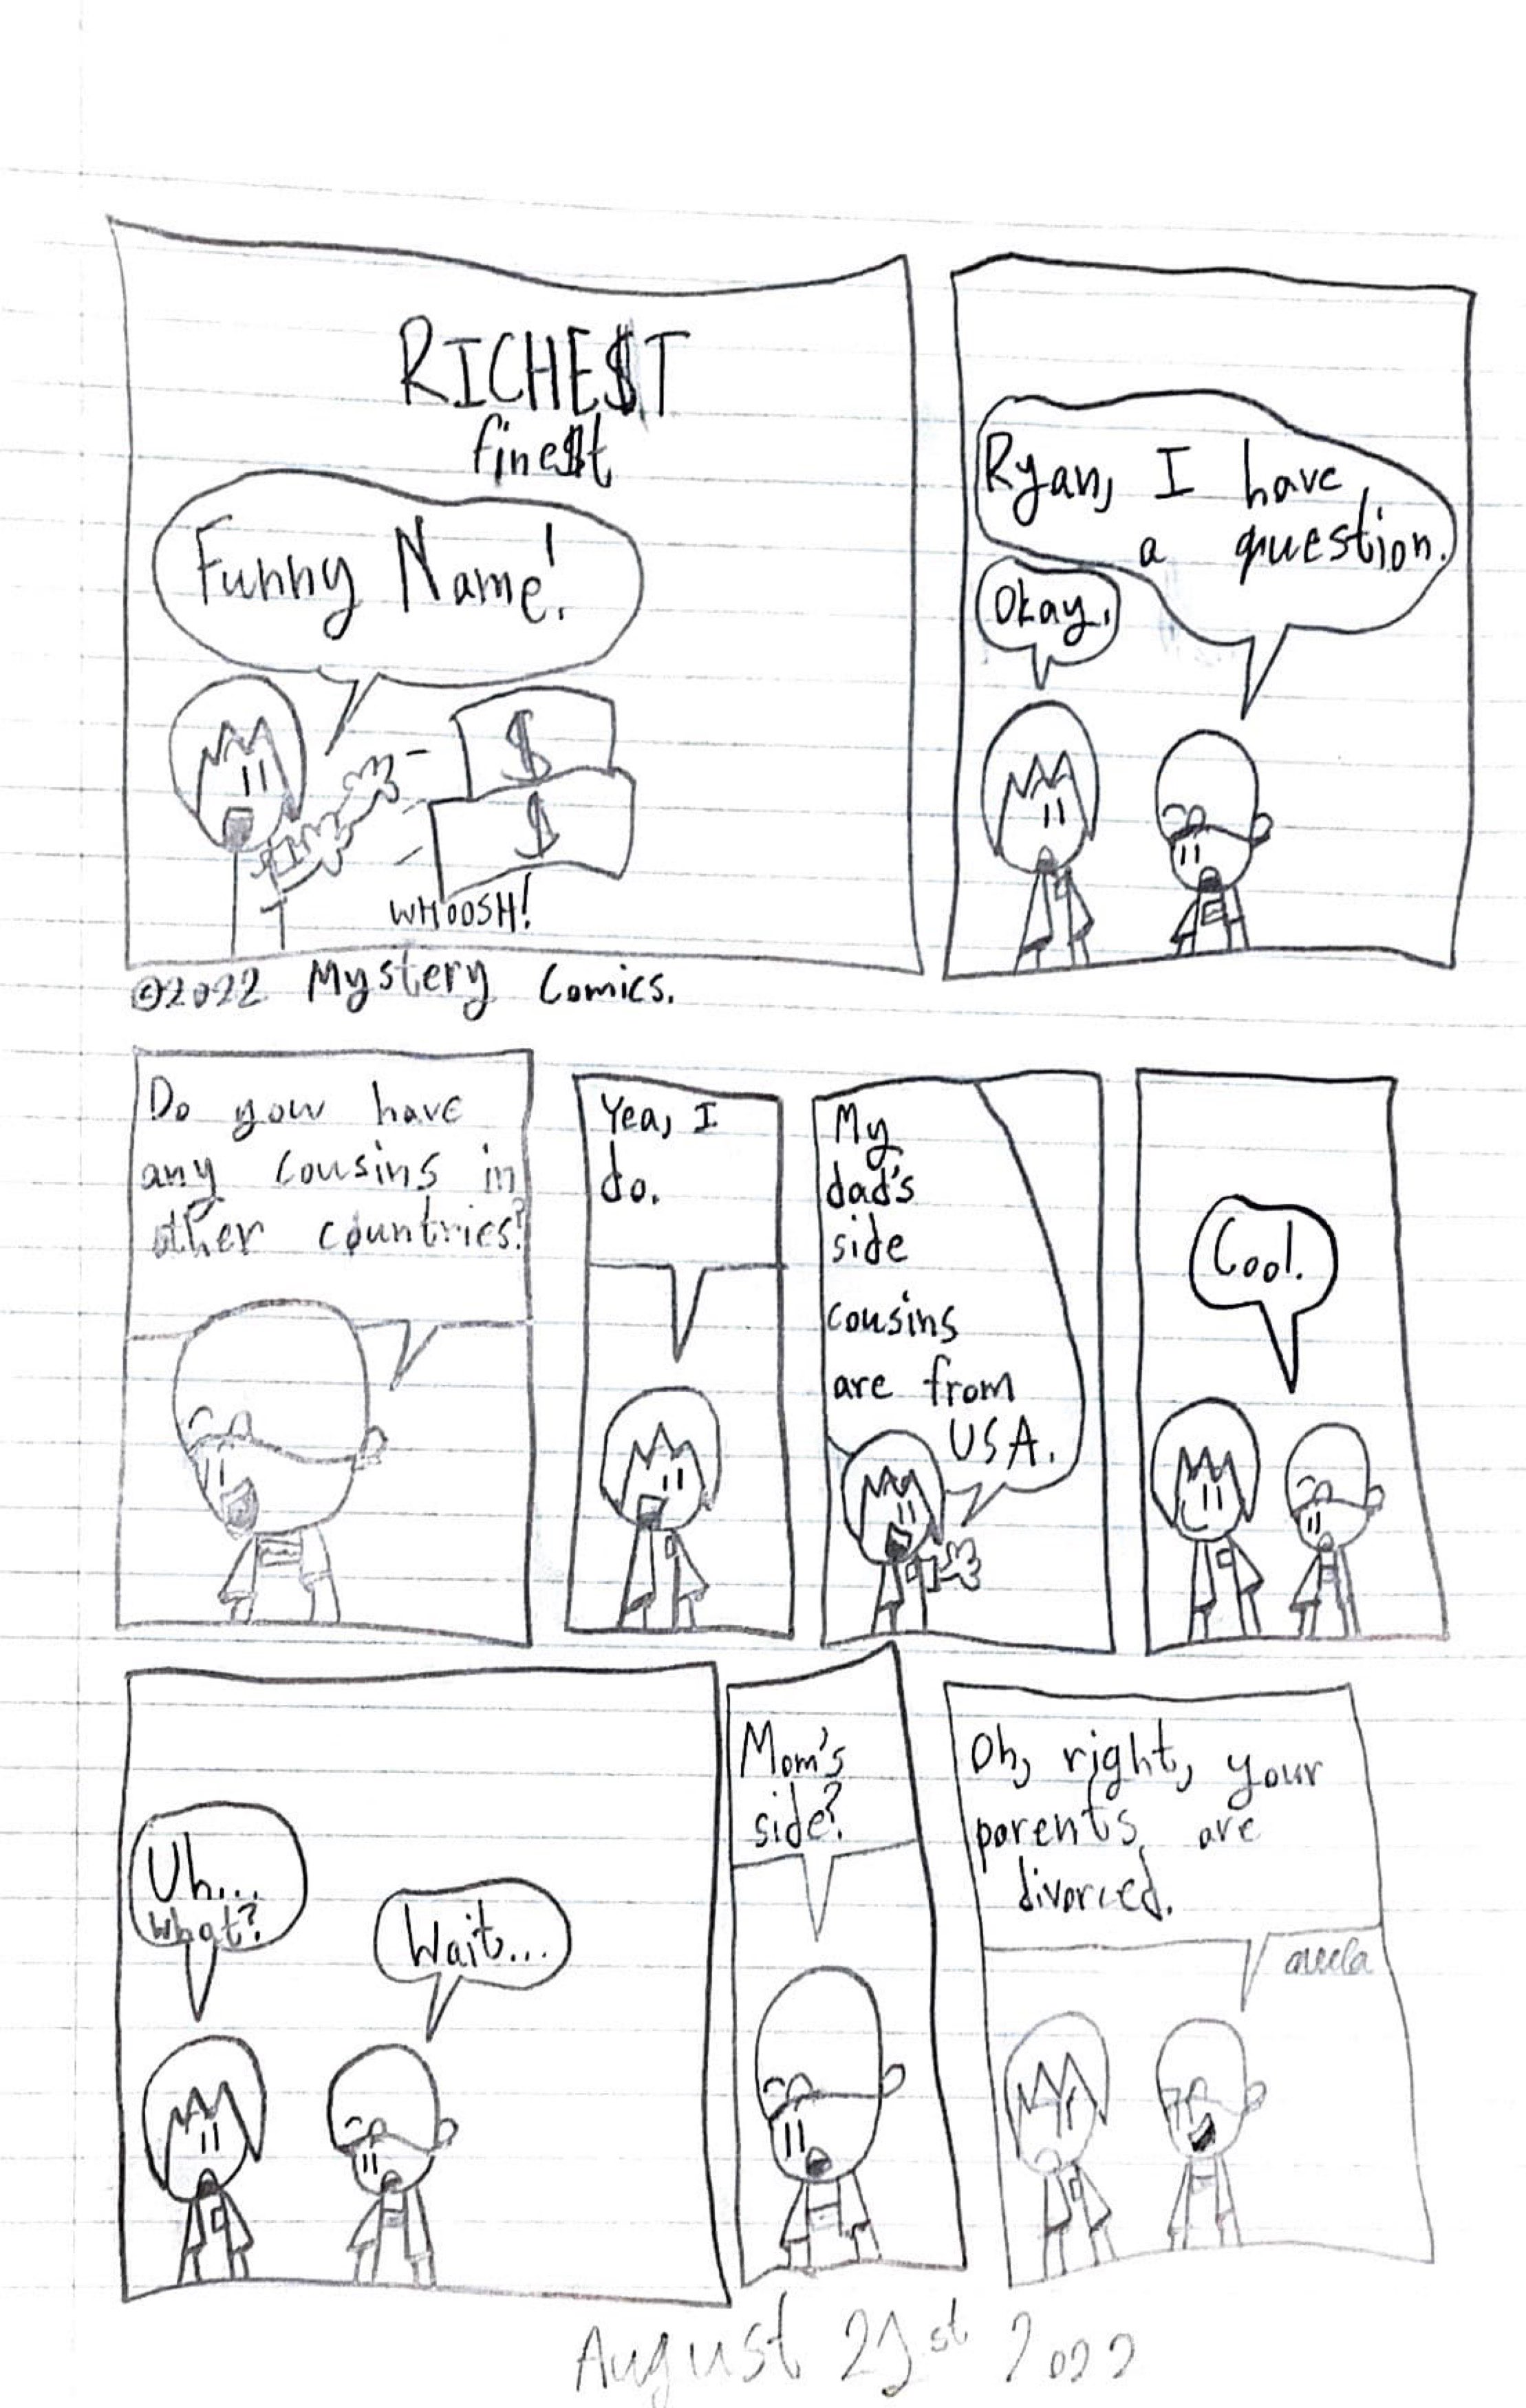 RICHE$T
fine$t
Funny Name!
$
$
WHOOSH!
©2022 Mystery Comics.
Ryan, I have
a question.
Okay.
Do you have
any cousins in
other countries?
Yea, I
do.
My
dad's
side
cousins
are from
USA.
Cool.
Uh...
what?
Wait...
Mom's
side?
Oh, right, your
parents are
divorced.
August 21st 2022